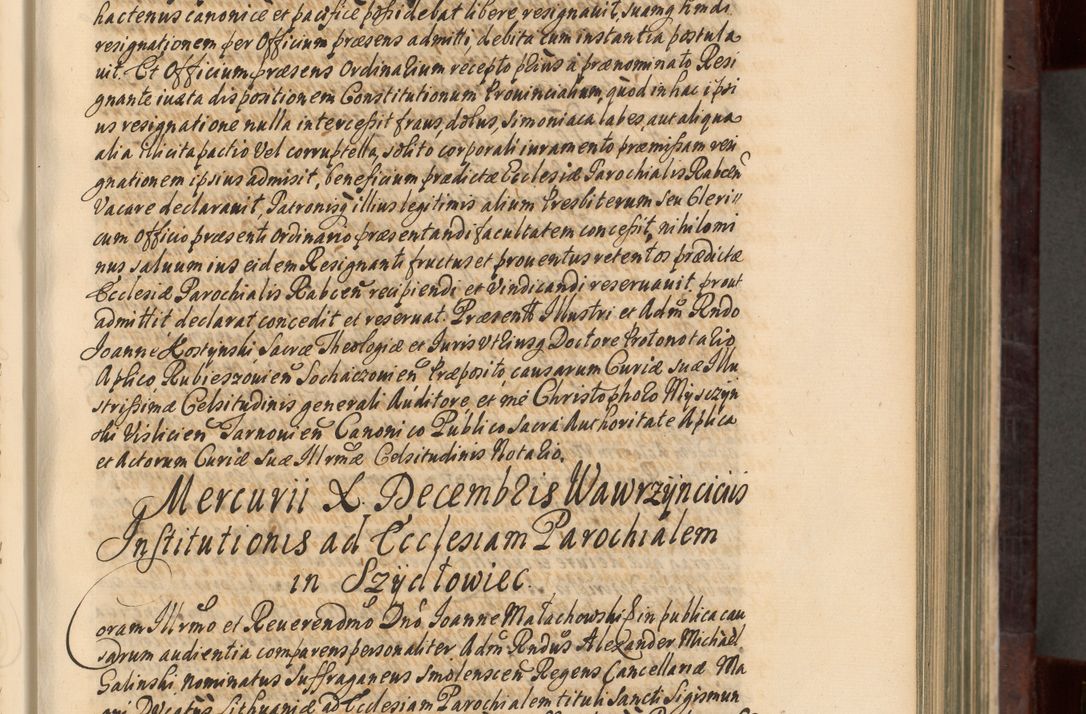 hactenus canonice et pacifice possidebat libere resignavit, suamq hmdi
resignationem per Officium præsens admitti, debita cum instantia postula
vit. Et Officium præsens Ordinarium recepto prius a prænominato Resi
gnante iuxta dispositionem Constitutionum Provincialium, quod in hac ipsi
us resignatione nulla intercessit fraus, dolus, simoniaca labes, aut aliqua
alia illicita pactio vel corruptella, solito corporali iuramento præmissam resi
gnationem ipsius admisit, beneficium prædictæ Ecclesiæ Parochialis Rabcen
Vacare declaravit, Patronisq illius legitimis alium Presbiterum seu Cleri
cum Officio præsenti Ordinario præsentandi facultatem concessit, nihilomi
nus salvum ius eidem Resignanti fructus et proventus retentos prædictæ
Ecclesiæ Parochialis Rabcen recipiendi et vindicandi reservavit, prout
admittit declarat concedit et reservat. Præsentt Illustri et Adm Rndo
Joanne Hostynski Sacræ Theologiæ et Juris Utriusq Doctore Protonotario
Aplico Rubieszovien Sochaczovien Præposito, causarum Curiæ suæ Illu
strissimæ Celsitudinis generali Auditore, et me Christophoro Mysczyn
ski Vislicien Tarnovien Canonico Publico Sacra Authoritate Aplica
et Actorum Curiæ Suæ Illrmæ Celsitudinis Notario.
Mercurii X. Decembris Wawrzÿnciciis
Institutionis ad Ecclesiam Parochialem
in Szÿdłowiec.
Coram Illrmo et Reverendmo Dno Joanne Małachowski Epin publica cau
sarum audientia comparens personaliter Adm Rndus Alexander Michael
Galinski, Nominatus Suffraganeus Smolenscen Regens Cancellariæ Ma
gni Ducatus Lithuaniæ ad Ecclesiam Parochialem tituli Sancti Sigismun